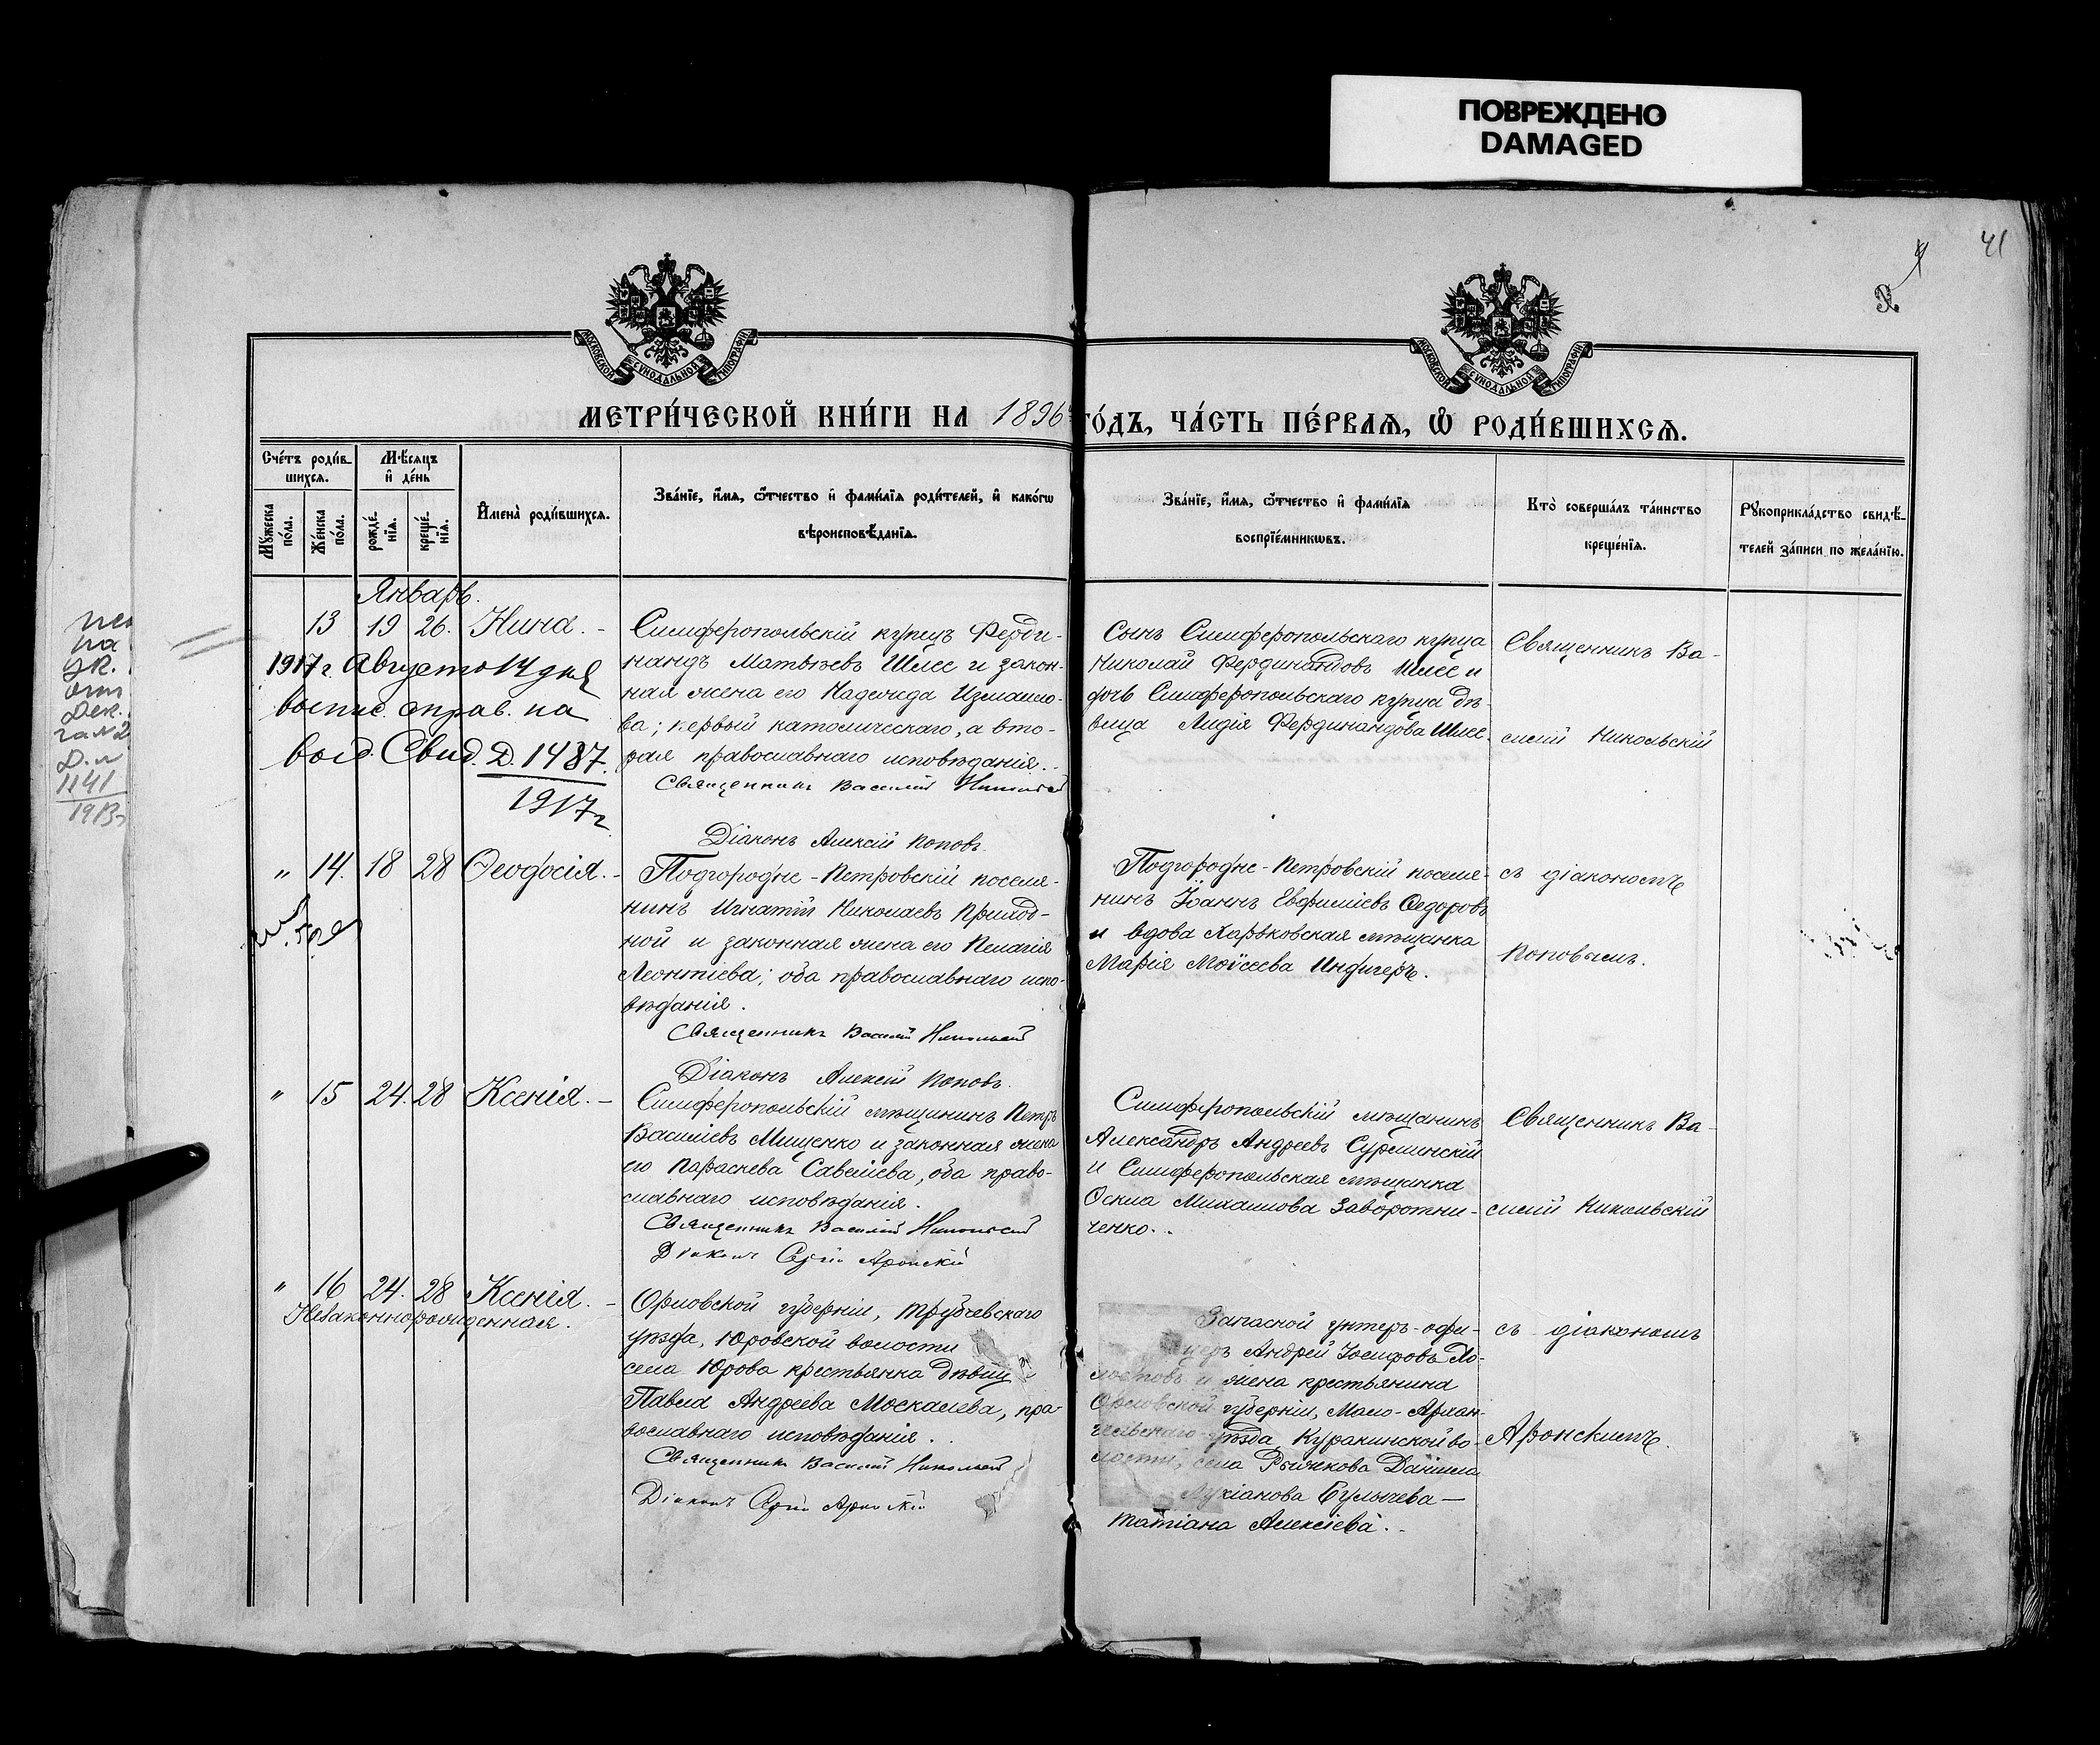 ПОВРЕЖДЕНО
DAMAGED
41
МОСКОВСКОЙ СѴНОДАЛЬНОЙ ТИПОГРАФІИ
МОСКОВСКОЙ СѴНОДАЛЬНОЙ ТИПОГРАФІИ
МЕТРИ́ЧЕСКОЙ КНИ́ГИ НА 1896 ГО́ДЪ, ЧА́СТЬ ПЕ́РВАѦ, Ѡ РОДИ́ВШИХСѦ.
Сче́тъ роди́в-
шихсѧ.
Мѣ́сяцъ
и҆ де́нь
Мꙋ́жеска
по́ла.
Же́нска
по́ла.
рожде́-
нїѧ.
креще́-
нїѧ.
И҆мена̀ роди́вшихсѧ.
Зва́нїе, и҆́мѧ, ѻ҆́тчество и҆ фами́лїѧ роди́телей, и҆ како́гѡ
вѣроисповѣ́данїѧ.
Зва́нїе, и҆́мѧ, ѻ҆́тчество и҆ фами́лїѧ
воспрїе́мникѡвъ.
Кто̀ соверша́лъ та́инство
креще́нїѧ.
Рꙋкоприкла́дство свидѣ́-
телей за́писи по жела́нїю.
Январь.
13 19 26. Нина. -
1917 г. Августа 14 дня
выпис. справ. на
выд. Свид. Д. 1487.
1917 г
Симферопольскій купецъ Ферди-
нандъ Матвѣевъ Шлее и закон-
ная жена его Надежда Измаило-
ва; первый католическаго, а вто-
рая православнаго исповѣданія.
Священникъ Василій Никольскій
Діаконъ Алексій Поповъ.
Сынъ Симферопольскаго купца
Николай Фердинандовъ Шлее и
дочь Симферопольскаго купца дѣ-
вица Лидія Фердинандова Шлее.
Священникъ Ва-
силій Никольскій
1141
1913 г
" 14. 18 28 Ѳеодосія. -
Подгородне-Петровскій поселя-
нинъ Игнатій Николаевъ Приход-
ной и законная жена его Пелагія
Леонтіева; оба православнаго испо-
вѣданія.
Священникъ Василій Никольскій
Діаконъ Алексій Поповъ.
Подгородне-Петровскій поселя-
нинъ Іоаннъ Евфиміевъ Ѳедоровъ
и вдова Харьковская мѣщанка
Марія Моѵсеева Индигеръ.
съ діакономъ
Поповымъ.
" 15 24. 28 Ксенія. -
Симферопольскій мѣщанинъ Петръ
Василіевъ Мищенко и законная жена
его Параскева Савеліева, оба право-
славнаго исповѣданія.
Священникъ Василій Никольскій
Діаконъ Сергій Аронскій
Симферопольскій мѣщанинъ
Александръ Андреевъ Сурминскій
и Симферопольская мѣщанка
Ѳекла Михаилова Заворотни-
ченко.
Священникъ Ва-
силій Никольскій
" 16 24. 28 Ксенія. -
Незаконнорожденная.
Орловской губерніи, Трубчевскаго
уѣзда, Юровской волости
села Юрова крестьянка дѣвица
Павла Андреева Москалева, пра-
вославнаго исповѣданія.
Священникъ Василій Никольскій
Діаконъ Сергій Аронскій
Запасной унтеръ-офи-
церъ Андрей Іосифовъ Хо-
лостовъ и жена крестьянина
Орловской губерніи, Мало-Архан-
гельскаго уѣзда, Куракинской во-
лости, села Рыжкова Даніила
Лукіанова Булычева -
Татіана Алексіева.
съ діакономъ
Аронскимъ.